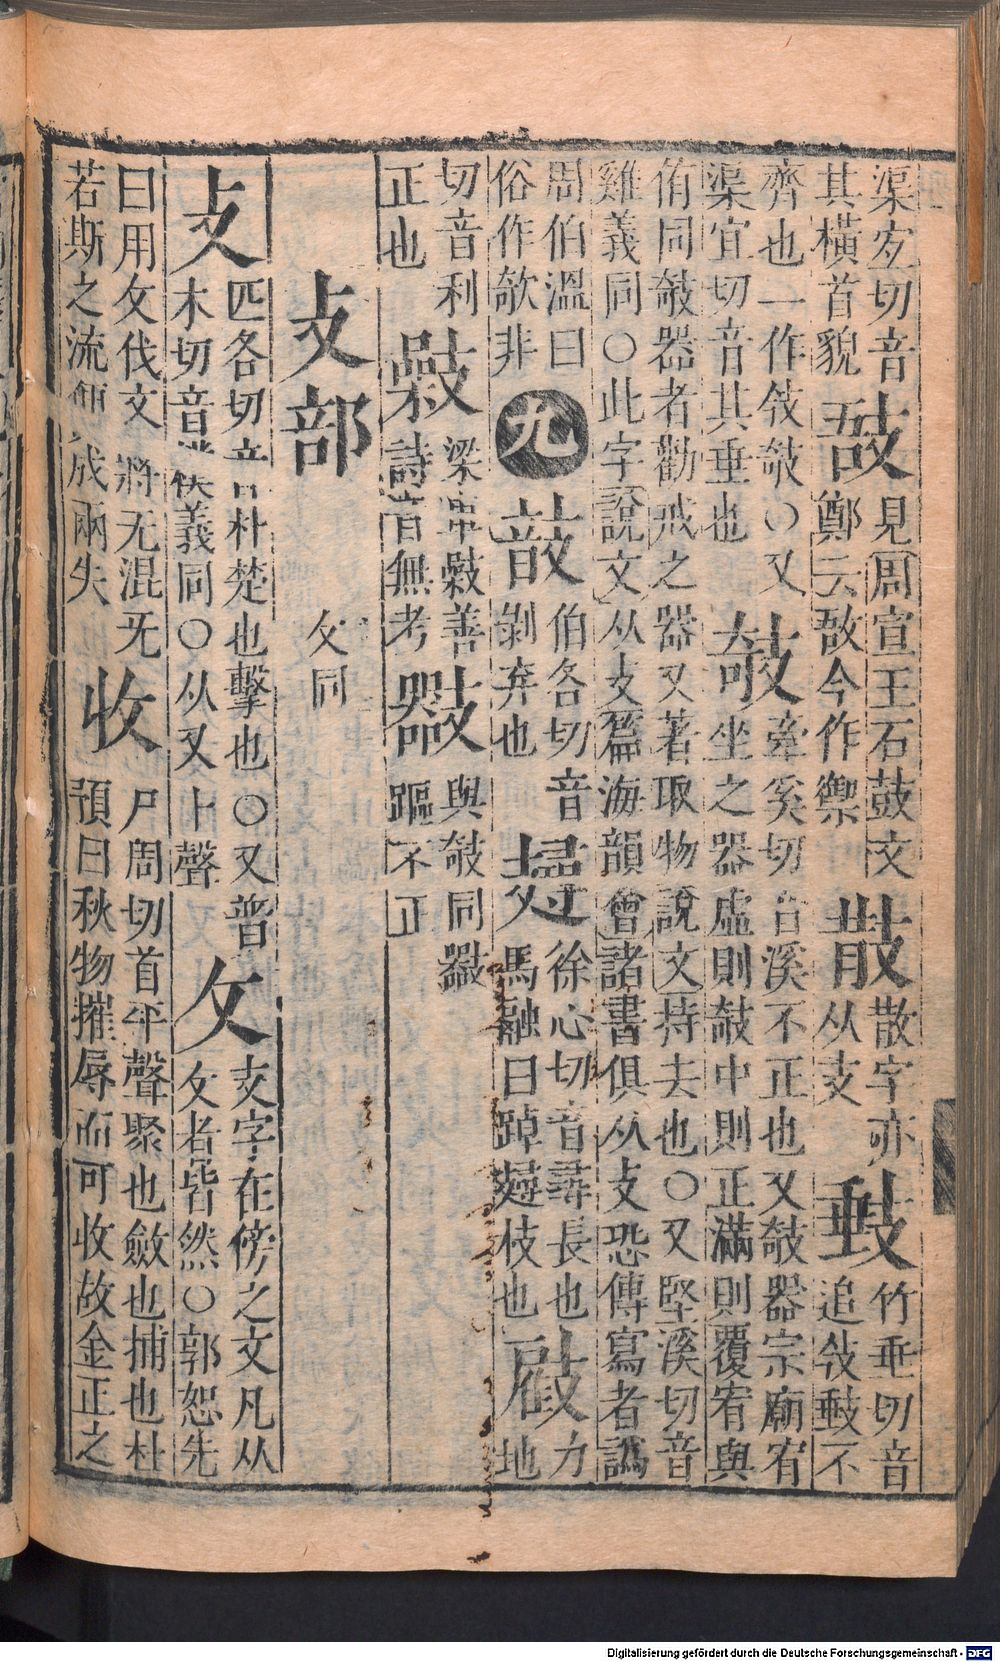 渠宐切音
其橫首貌
敔
見周宣王石鼓文
鄭云敔今作禦
㪔
散字亦
从支
竹垂切音
追攲不
齊也一作攲○又
渠宜切音其垂也
攲
牽奚切音溪不正也又攲器宗廟宥
坐之器虛則攲中則正滿則覆宥與
侑同攲器者勸戒之器又著取物說文持去也○又堅溪切音
雞義同○此字說文从支篇海韻會諸書俱从攴恐傳寫者譌
周伯溫曰
俗作欹非
九
伯各切音
剝弃也
徐心切音尋長也
馬融曰踔𢾕枝也
力地
切音利
正也
梁𢾭善
詩音無考
與攲同
䠧不正
攴部
攵同
攴
匹各切音朴楚也擊也○又普
木切音 義同○从又卜聲
攵
攴字在傍之文凡从
攵者皆然○郭恕先
曰用攵伐文將无混旡
若斯之流 成兩失
收
尸周切首平聲聚也斂也捕也杜
預曰秋物摧辱而可收故金正之
Digitalisierung gefördert durch die Deutsche Forschungsgemeinschaft - DFG